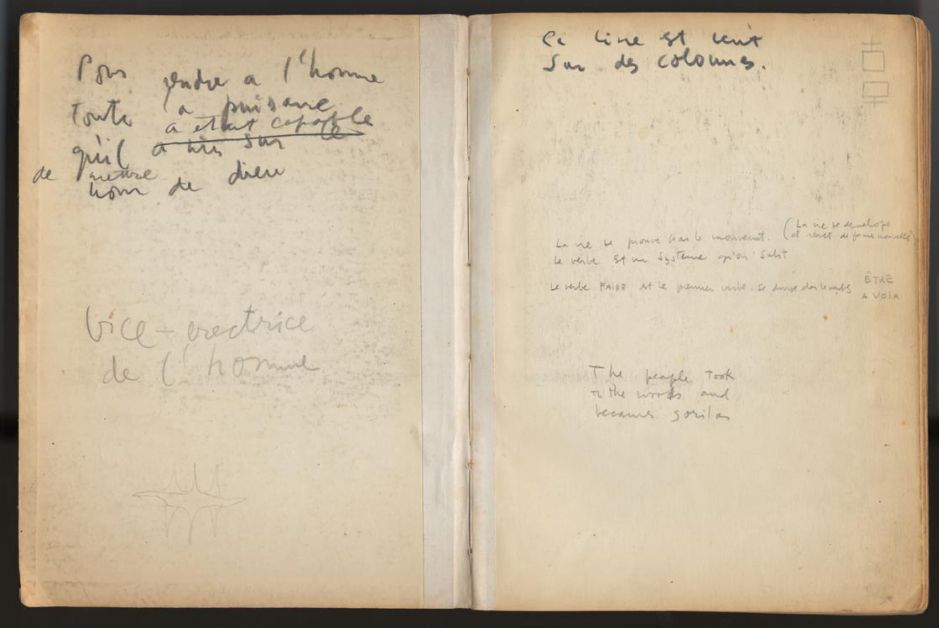 Pour rendre a l'homme
toute la puissance
qu'il a était capable
a mis sur le
de mettre
nom de dieu
Vice-rectrice
de l'homme
Ce livre est écrit
Sur des colonnes.
La vie se prouve par le mouvement.
(La vie se développe
et revêt de forme nouvelle)
Le verbe est un système qu'on subit
Le verbe FAIRE est le premier verbe. Se divise dans le verbe
ÊTRE
AVOIR
The people took
to the woods and
became gorilas